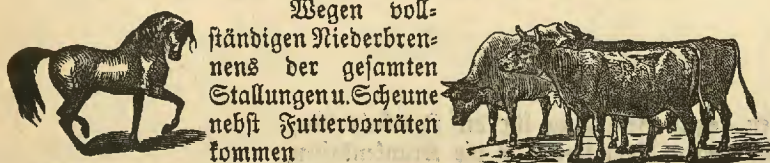 Wegen voll-
ständigen Niederbren-
nens der gesamten
Stallungen u. Scheune
nebst Futtervorräten
kommen